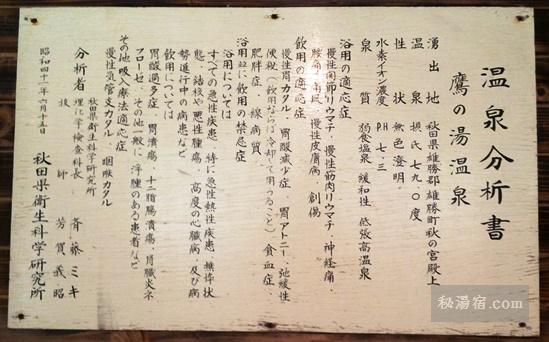 温泉分析書
鷹の湯温泉
湧出地 秋田県雄勝郡雄勝町秋の宮殿上
温泉 摂氏七九、〇度
性状 無色澄明、
水素イオン濃度 PH七、三
泉質 弱食塩泉 緩和性 低張高温泉
浴用の適応症
慢性関節リウマチ、慢性筋肉リウマチ、神経痛、
慢性皮膚病、創傷
飲用の適応症
慢性胃カタル、胃酸減少症、胃アトニー、弛緩性
便秘(飲用ならば冷却して用うること)貧血症、
肥胖症、腺病質、
浴用並に飲用の禁忌症
浴用については
すべての急性疾患 特に急性熱性疾患、虚弱状
態、結核や悪性腫瘍、高度の心臓病、及び病
勢進行中の病患など
飲用については
胃酸過多症、胃潰瘍、十二指腸潰瘍、腎臓炎ネ
フローゼ、その他一般に、浮腫のある患者など
その他吸入療法適応症
慢性気管支カタル、咽喉カタル
分析者 秋田県衛生科学研究所
理化学検査科長 斉藤ミキ
技師 芳賀義昭
昭和四十二年六月十五日 秋田県衛生科学研究所
秘湯宿.com